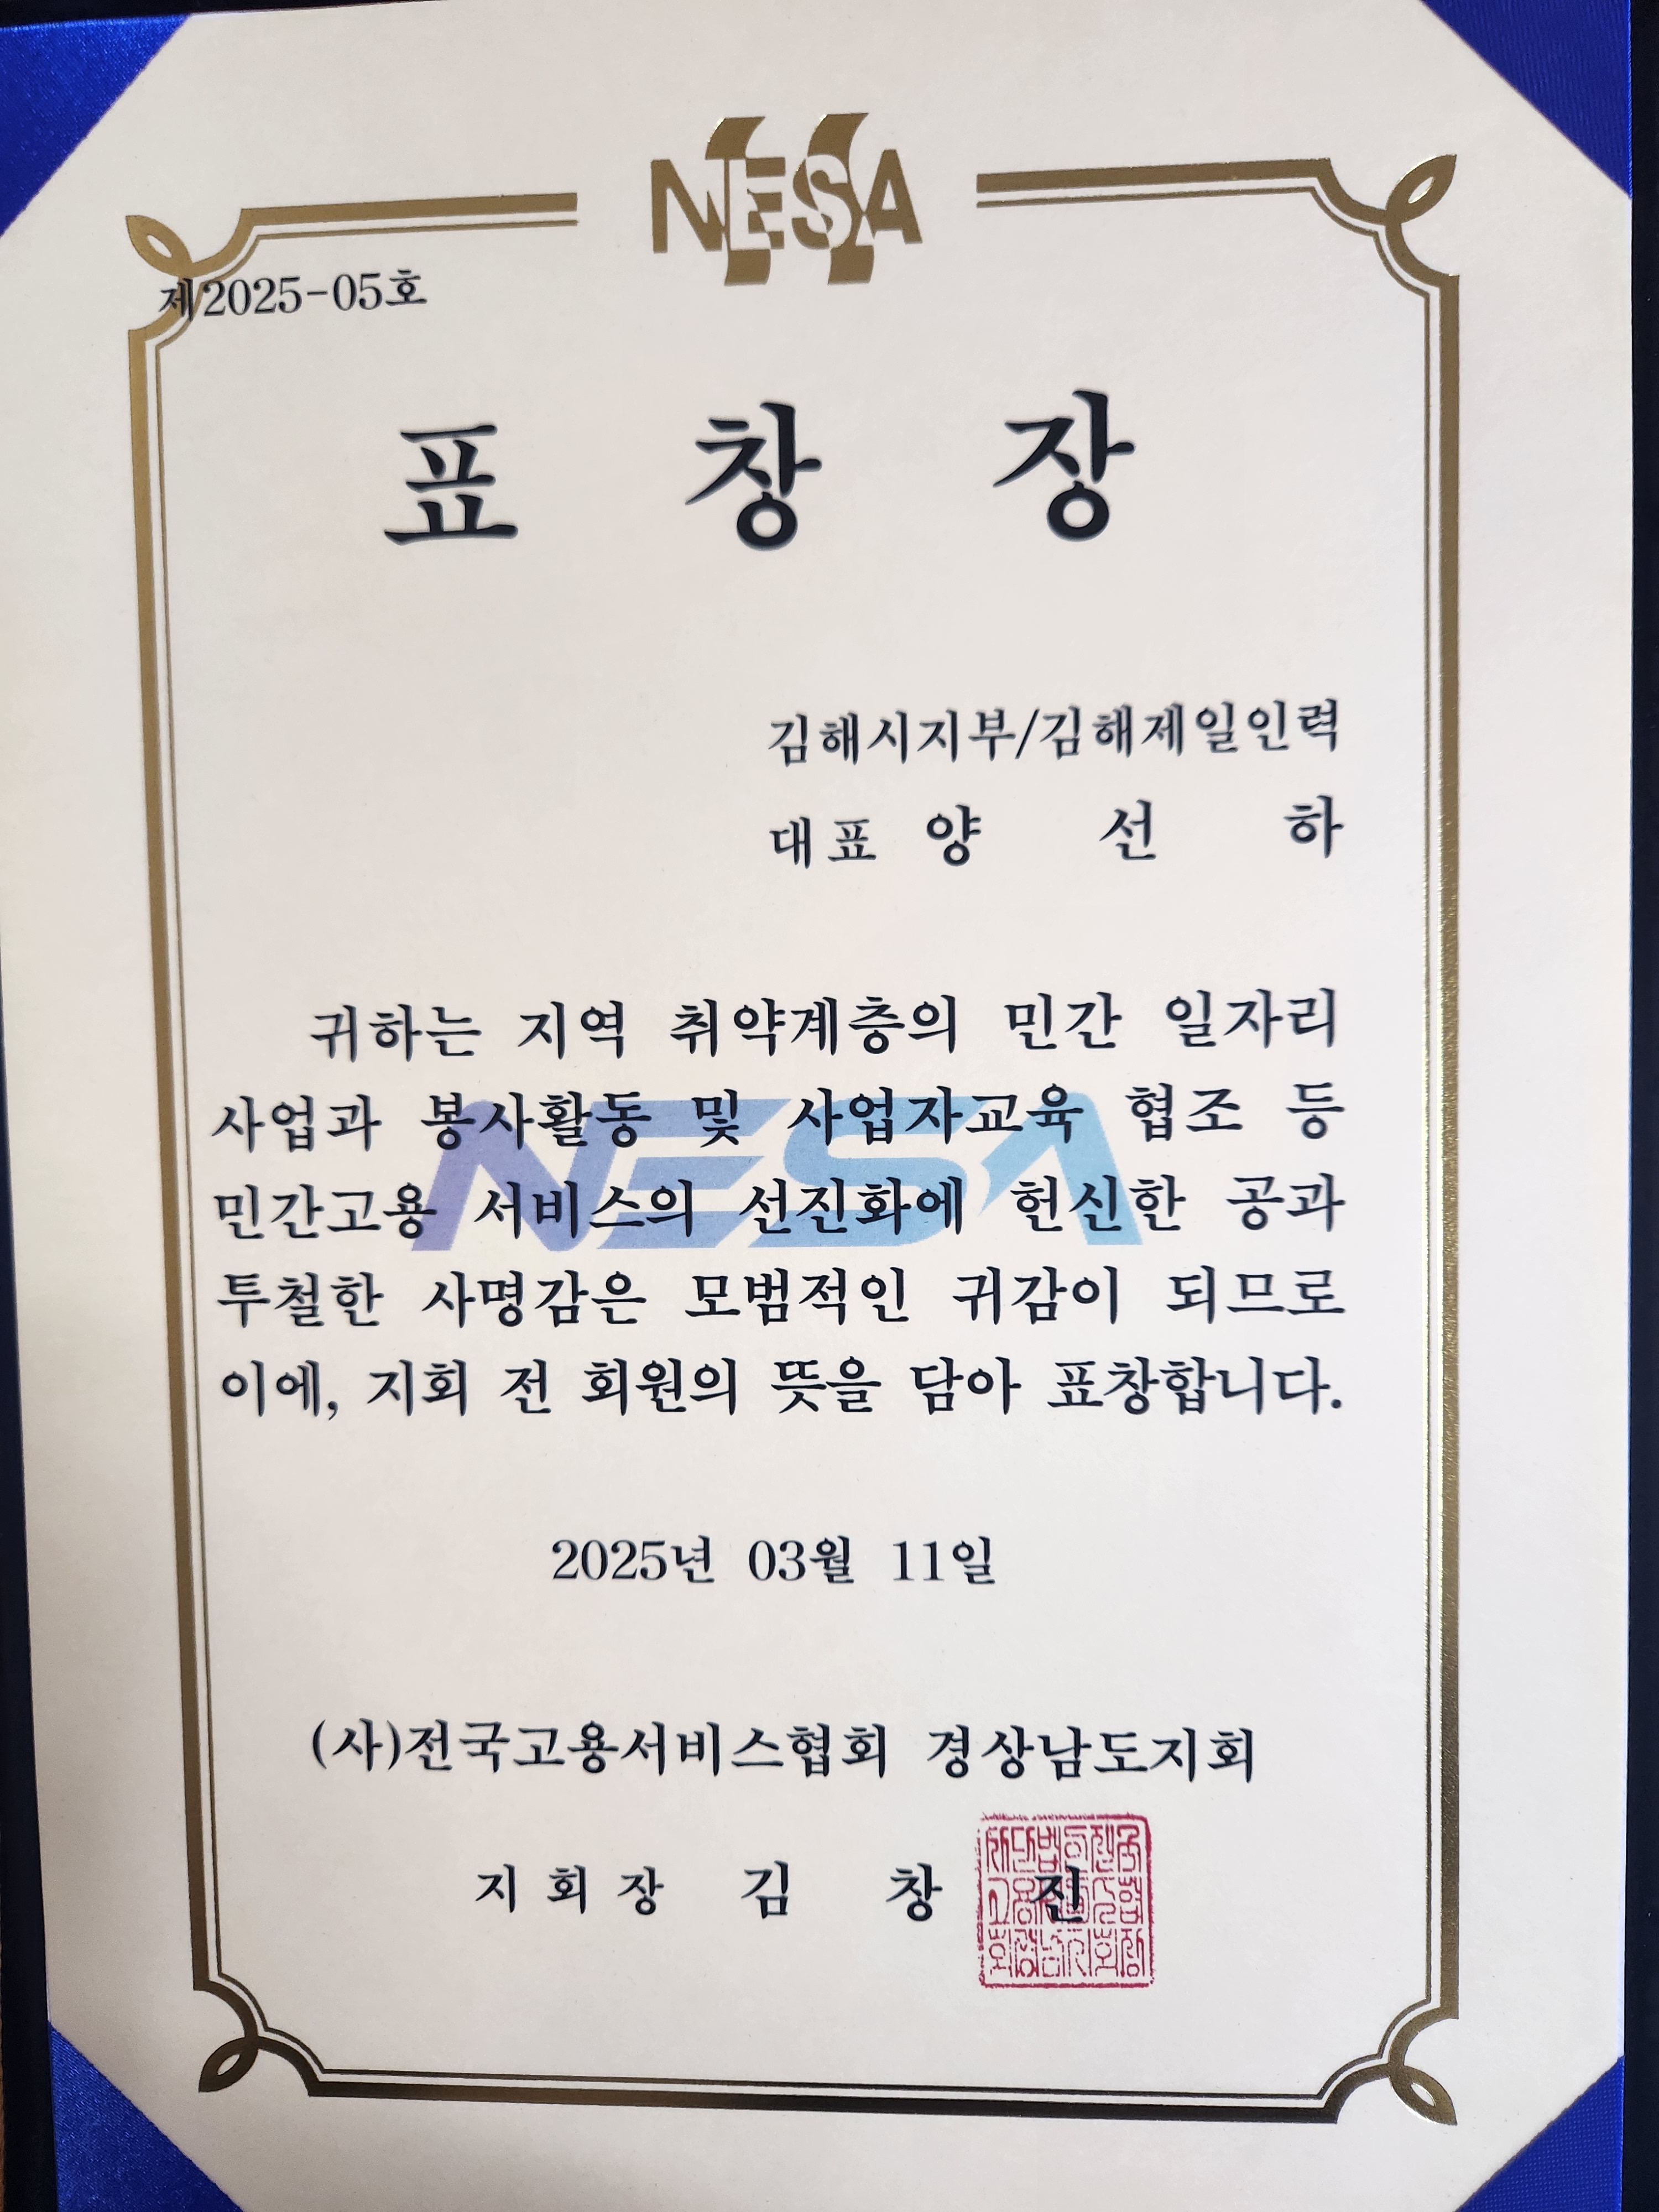 NESA
제2025-05호
표 창 장
김해시지부/김해제일인력
대표 양 선 하
귀하는 지역 취약계층의 민간 일자리
사업과 봉사활동 및 사업자교육 협조 등
민간고용 서비스의 선진화에 헌신한 공과
투철한 사명감은 모범적인 귀감이 되므로
이에, 지회 전 회원의 뜻을 담아 표창합니다.
NESA
2025년 03월 11일
(사)전국고용서비스협회 경상남도지회
지 회 장 김 창 진